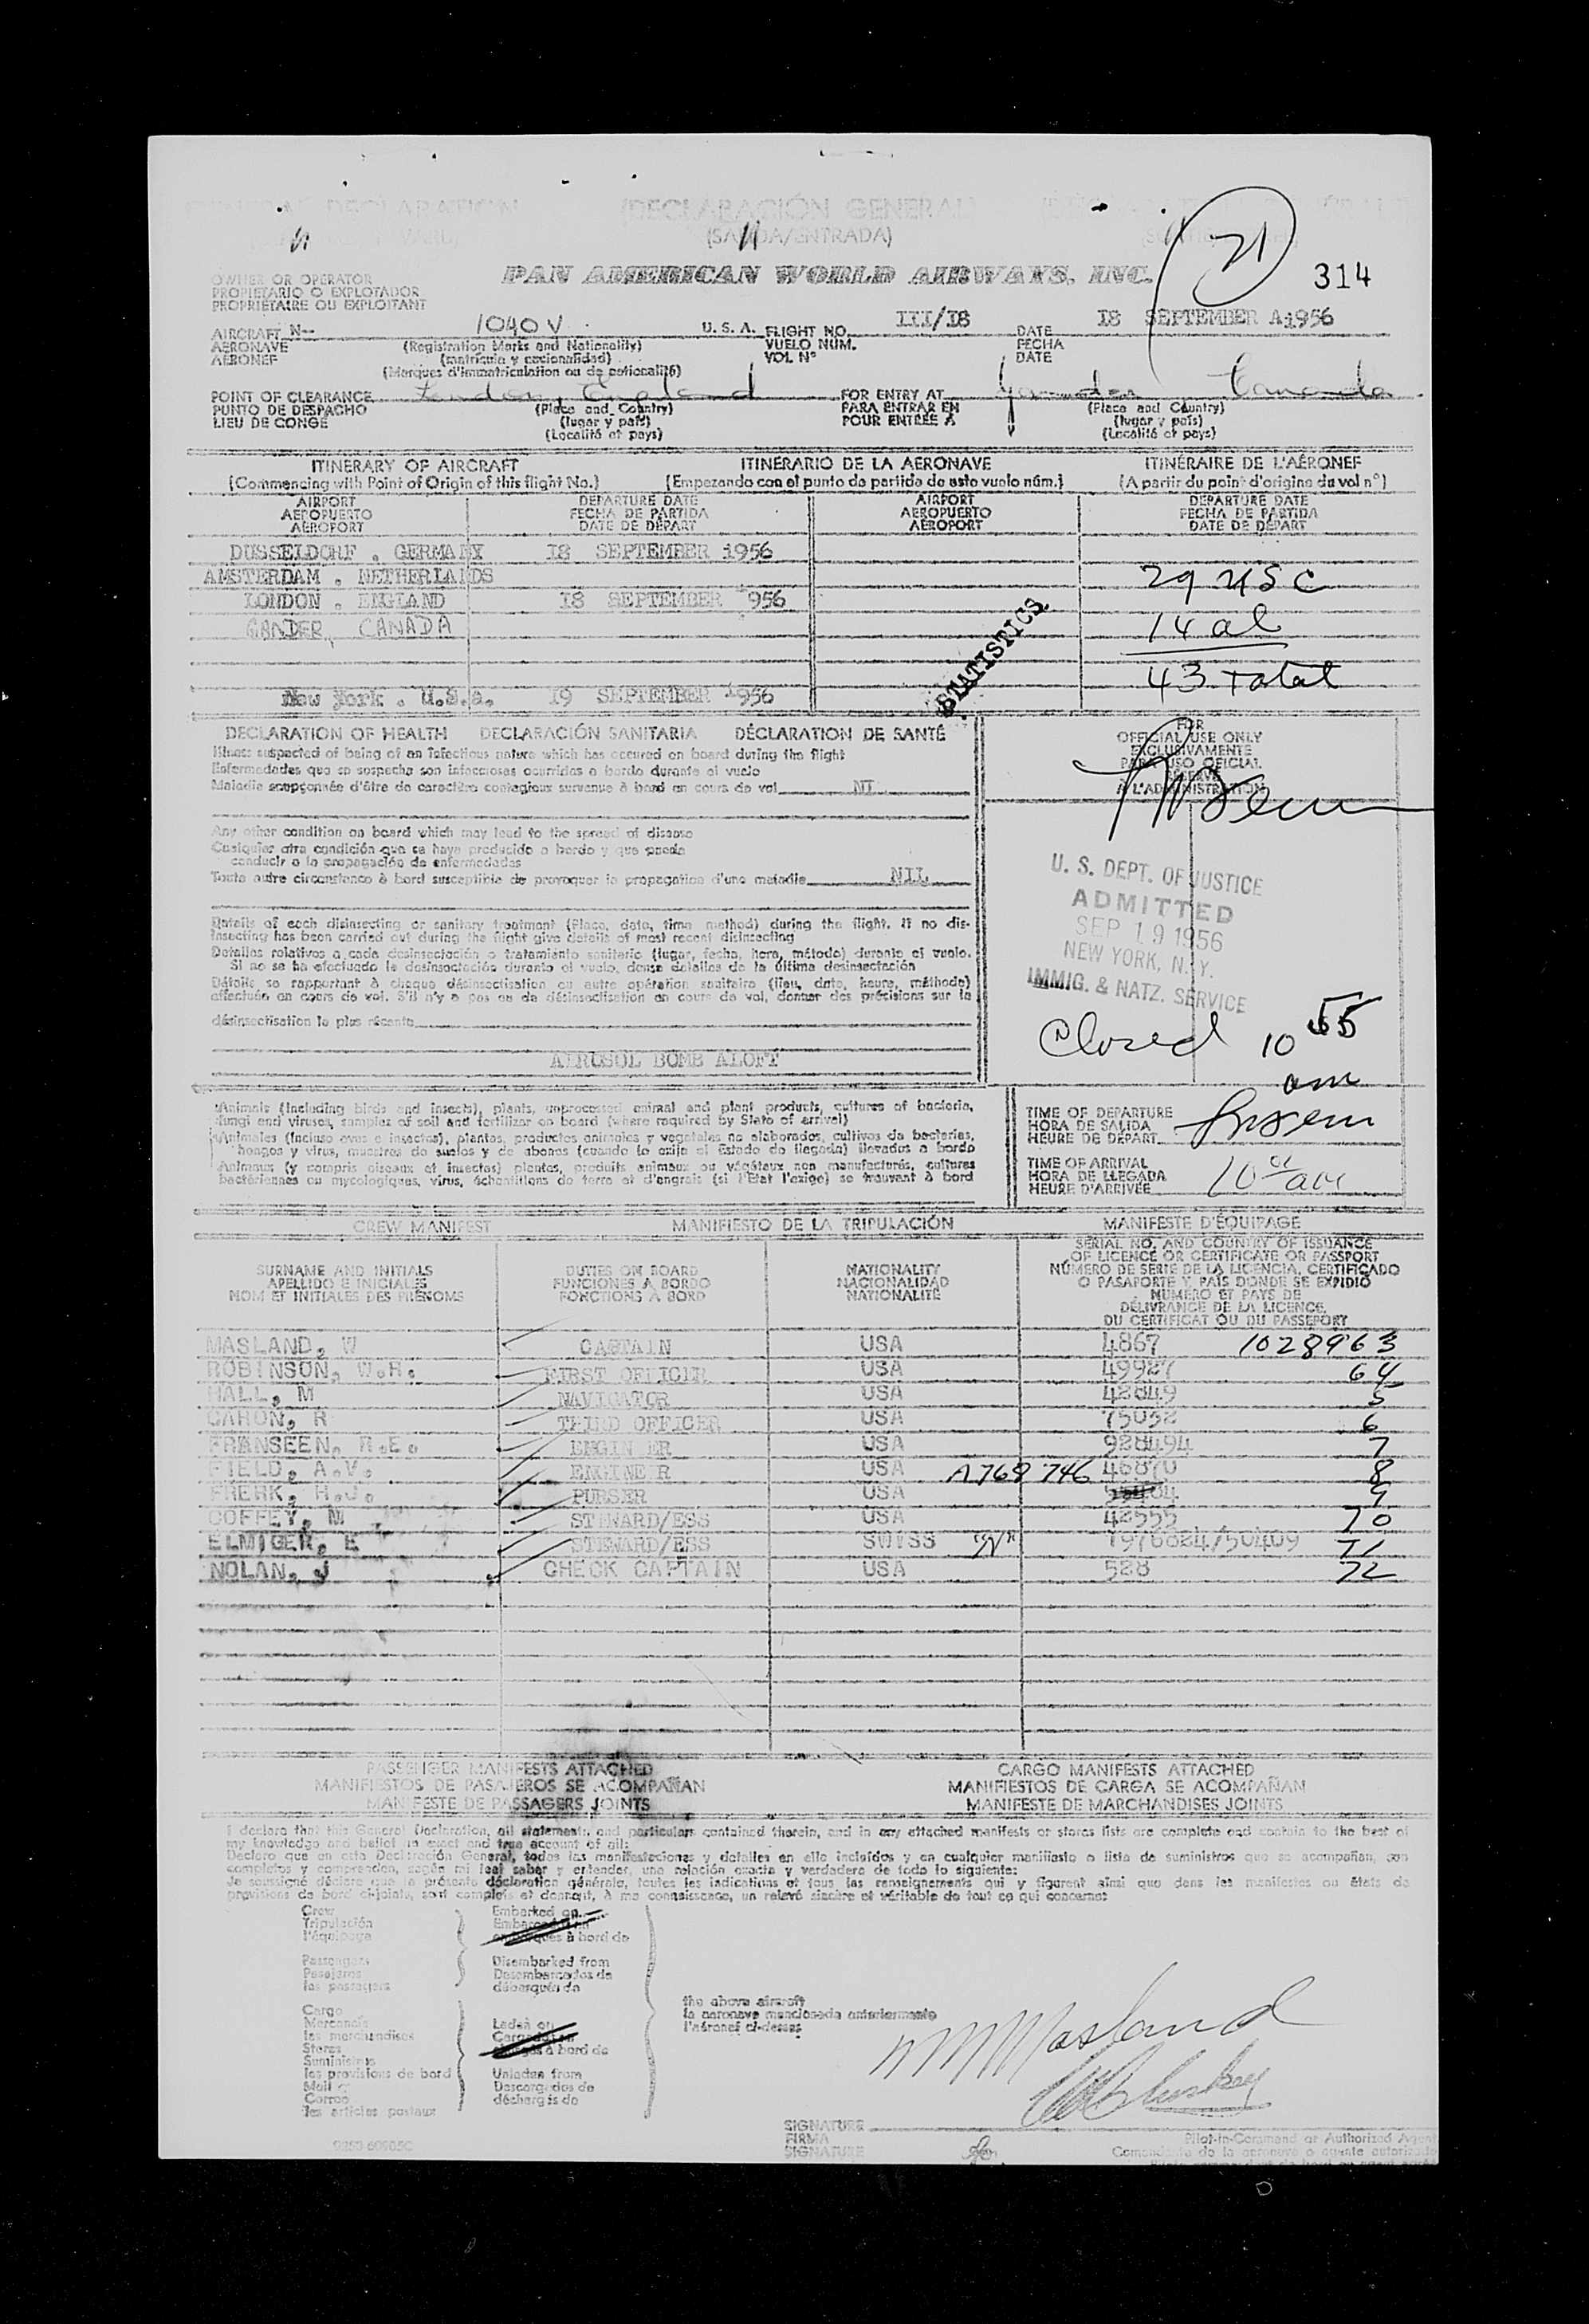 (DECLARACIÓN GENERAL)
(SALIDA/ENTRADA)
21
314
PAN AMERICAN WORLD AIRWAYS, INC.
OWNER OR OPERATOR
PROPIETARIO O EXPLOTADOR
PROPRIÉTAIRE OU EXPLOITANT
AIRCRAFT N-- 1040 V U. S. A. FLIGHT NO. III/I8 DATE I8 SEPTEMBER A1956
AERONAVE (Registration Marks and Nationality) VUELO NÚM. FECHA
AÉRONEF (matrícula y nacionalidad) VOL N° DATE
(Marques d'immatriculation ou de nationalité)
POINT OF CLEARANCE London, England FOR ENTRY AT Gander Canada
PUNTO DE DESPACHO (Place and Country) PARA ENTRAR EN (Place and Country)
LIEU DE CONGÉ (lugar y país) POUR ENTRÉE A (lugar y país)
(Localité et pays) (Localité et pays)
ITINERARY OF AIRCRAFT ITINERARIO DE LA AERONAVE ITINÉRAIRE DE L'AÉRONEF
(Commencing with Point of Origin of this flight No.) (Empezando con el punto de partida de este vuelo núm.) (A partir du point d'origine du vol n°)
AIRPORT DEPARTURE DATE AIRPORT DEPARTURE DATE
AEROPUERTO FECHA DE PARTIDA AEROPUERTO FECHA DE PARTIDA
AÉROPORT DATE DE DÉPART AÉROPORT DATE DE DÉPART
DUSSELDORF . GERMANY I8 SEPTEMBER 1956
AMSTERDAM . NETHERLANDS 29 USC
LONDON . ENGLAND I8 SEPTEMBER 956
GANDER, CANADA 14 al
43 total
STATISTICS
New York . U.S.A. I9 SEPTEMBER 1956
DECLARATION OF HEALTH DECLARACIÓN SANITARIA DÉCLARATION DE SANTÉ
Illness suspected of being of an infectious nature which has occured on board during the flight
Enfermedades que se sospecha son infecciosas ocurridas a bordo durante el vuelo
Maladie soupçonnée d'être de caractère contagieux survenue à bord en cours de vol
FOR
OFFICIAL USE ONLY
EXCLUSIVAMENTE
PARA USO OFICIAL
RÉSERVÉ
À L'ADMINISTRATION
Any other condition on board which may lead to the spread of disease
Cualquier otra condición que se haya producido a bordo y que pueda
conducir a la propagación de enfermedades
Toute autre circonstance à bord susceptible de provoquer la propagation d'une maladie NIL
U. S. DEPT. OF JUSTICE
ADMITTED
SEP 19 1956
NEW YORK, N. Y.
IMMIG. & NATZ. SERVICE
Closed 10 55
am
Details of each disinsecting or sanitary treatment (Place, date, time method) during the flight. If no dis-
insecting has been carried out during the flight give details of most recent disinsecting
Detalles relativos a cada desinsectación o tratamiento sanitario (lugar, fecha, hora, método) durante el vuelo.
Si no se ha efectuado la desinsectación durante el vuelo, dense detalles de la última desinsectación
Détails se rapportant à chaque désinsectisation ou autre opération sanitaire (lieu, date, heure, méthode)
effectuée en cours de vol. S'il n'y a pas eu de désinsectisation en cours de vol, donner des précisions sur la
désinsectisation la plus récente
AIRUSOL BOMB ALOFT
Animals (including birds and insects), plants, unprocessed animal and plant products, cultures of bacteria,
fungi and viruses, samples of soil and fertilizer on board (where required by State of arrival)
Animales (incluso aves e insectos), plantas, productos animales y vegetales no elaborados, cultivos de bacterias,
hongos y virus, muestras de suelos y de abonos (cuando lo exija el Estado de llegada) llevados a bordo
Animaux (y compris oiseaux et insectes) plantes, produits animaux ou végétaux non manufacturés, cultures
bactériennes ou mycologiques, virus, échantillons de terre et d'engrais (si l'État l'exige) se trouvant à bord
TIME OF DEPARTURE
HORA DE SALIDA
HEURE DE DÉPART
TIME OF ARRIVAL
HORA DE LLEGADA
HEURE D'ARRIVÉE 10 01 am
CREW MANIFEST MANIFIESTO DE LA TRIPULACIÓN MANIFESTE D'ÉQUIPAGE
SURNAME AND INITIALS DUTIES ON BOARD NATIONALITY
APELLIDO E INICIALES FUNCIONES A BORDO NACIONALIDAD
NOM ET INITIALES DES PRÉNOMS FONCTIONS À BORD NATIONALITÉ
SERIAL NO. AND COUNTRY OF ISSUANCE
OF LICENCE OR CERTIFICATE OR PASSPORT
NÚMERO DE SERIE DE LA LICENCIA, CERTIFICADO
O PASAPORTE Y PAÍS DONDE SE EXPIDIÓ
NUMÉRO ET PAYS DE
DÉLIVRANCE DE LA LICENCE,
DU CERTIFICAT OU DU PASSEPORT
MASLAND, W CAPTAIN USA 4867 1028963
ROBINSON, W.H. FIRST OFFICER USA 49927 64
HALL, M NAVIGATOR USA 42849 5
CARON, R THIRD OFFICER USA 75032 6
FRANSEEN, R.E. ENGIN ER USA 928494 7
FIELD, A.V. ENGINE R USA A768 746 46870 8
FREHK, H.J. PURSER USA 9
COFFEY, M STEWARD/ESS USA 42555 70
ELMIGER, E STEWARD/ESS SWISS 1976824/50409 71
NOLAN, J CHECK CAPTAIN USA 528 72
PASSENGER MANIFESTS ATTACHED CARGO MANIFESTS ATTACHED
MANIFIESTOS DE PASAJEROS SE ACOMPAÑAN MANIFIESTOS DE CARGA SE ACOMPAÑAN
MANIFESTE DE PASSAGERS JOINTS MANIFESTE DE MARCHANDISES JOINTS
I declare that this General Declaration, all statements and particulars contained therein, and in any attached manifests or stores lists are complete and contain to the best of
my knowledge and belief an exact and true account of all:
Declaro que en esta Declaración General, todas las manifestaciones y detalles en ella incluídos y en cualquier manifiesto o lista de suministros que se acompañan, son
completos y comprenden, según mi leal saber y entender, una relación exacta y verdadera de todo lo siguiente:
Je soussigné déclare que la présente déclaration générale, toutes les indications et tous les renseignements qui y figurent ainsi que dans les manifestes ou états de
provisions de bord ci-joints, sont complets et donnent, à ma connaissance, un relevé sincère et véritable de tout ce qui concerne:
Crew Embarked on
Tripulación
l'équipage embarqués à bord de
Passengers Disembarked from
Pasajeros Desembarcados de
les passagers débarqués de
the above aircraft
la aeronave mencionada anteriormente
l'aéronef ci-dessus
Cargo
Mercancía Laden on
les marchandises Cargado en
Stores chargés à bord de
Suministros
les provisions de bord Unladen from
Mail Descargados de
Correo déchargés de
les articles postaux
W M Masland
SIGNATURE
FIRMA Pilot-in-Command or Authorized Agent
SIGNATURE Comandante de la aeronave o agente autorizado